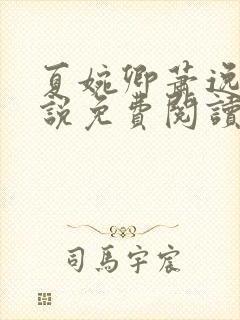 夏婉卿蕭逸
說免費閱讀
司馬宇宸